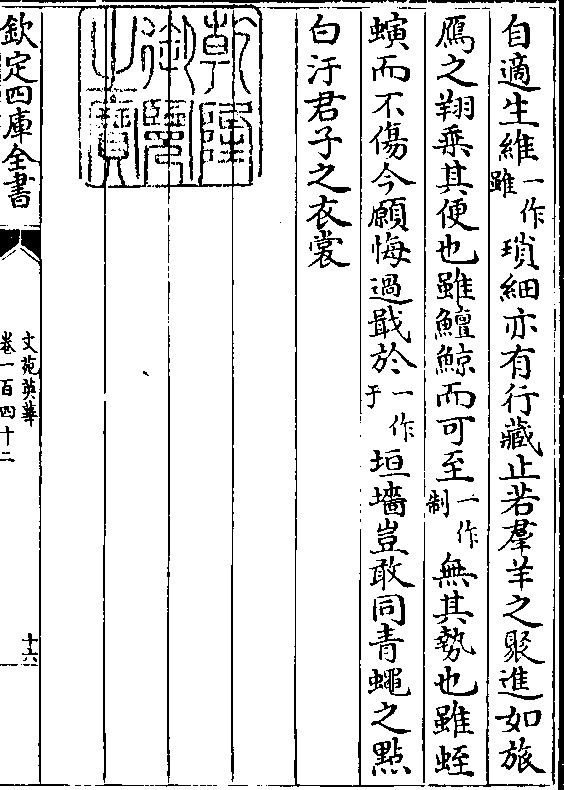 自適生維一作雖瑣細亦有行藏止若羣羊之聚進如旅
鴈之翔乘其便也雖鱣鯨而可至一作制無其勢也雖蛭
螾而不傷今願悔過戢於一作于垣墻豈敢同青蠅之點
白汙君子之衣裳
乾隆御覽之寶
欽定四庫全書
文苑英華
卷一百四十二
十六